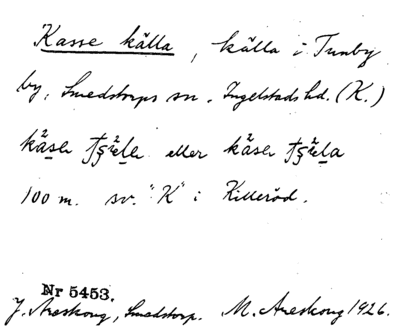 Kasse källa, källa i Tunby
by, Smedstorps sn. Ingelstads hd. (K.)
eller
100 m. sv. "K" i Killeröd.
Nr 5453.
J. Areskoug, Smedstorp. M. Areskoug 1926.